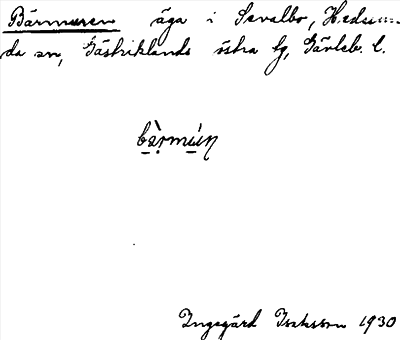 Bärmuren äga i Sevalbo, Hedesun-
da sn, Gästriklands östra tg, Gävleb. l.
bärmúın
Ingegärd Isaksson 1930